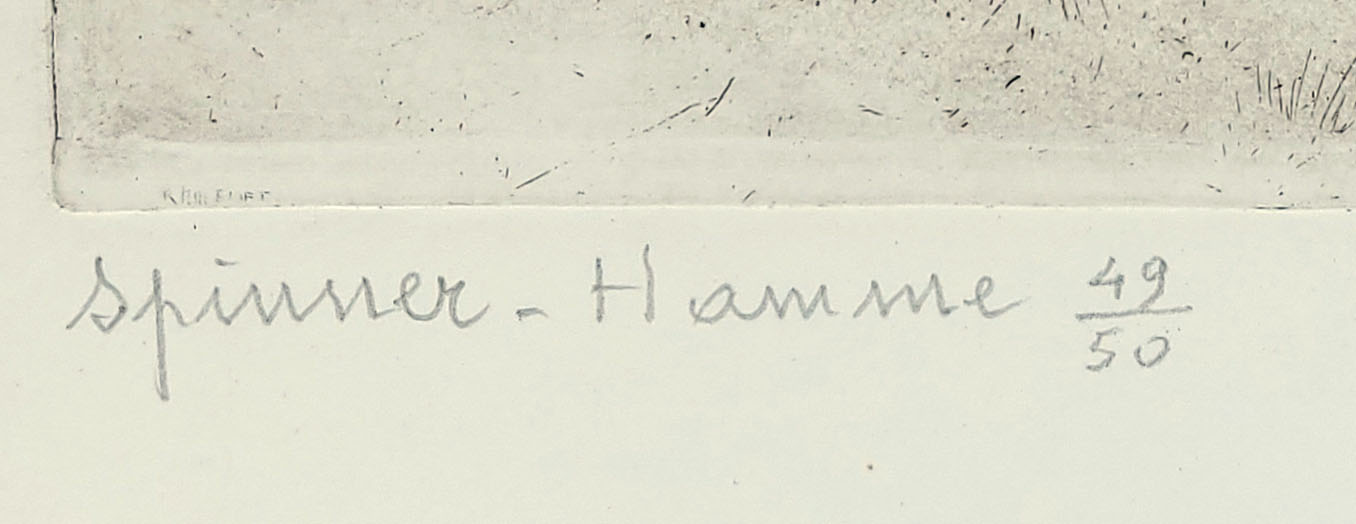 spinner - Hamme 49/50